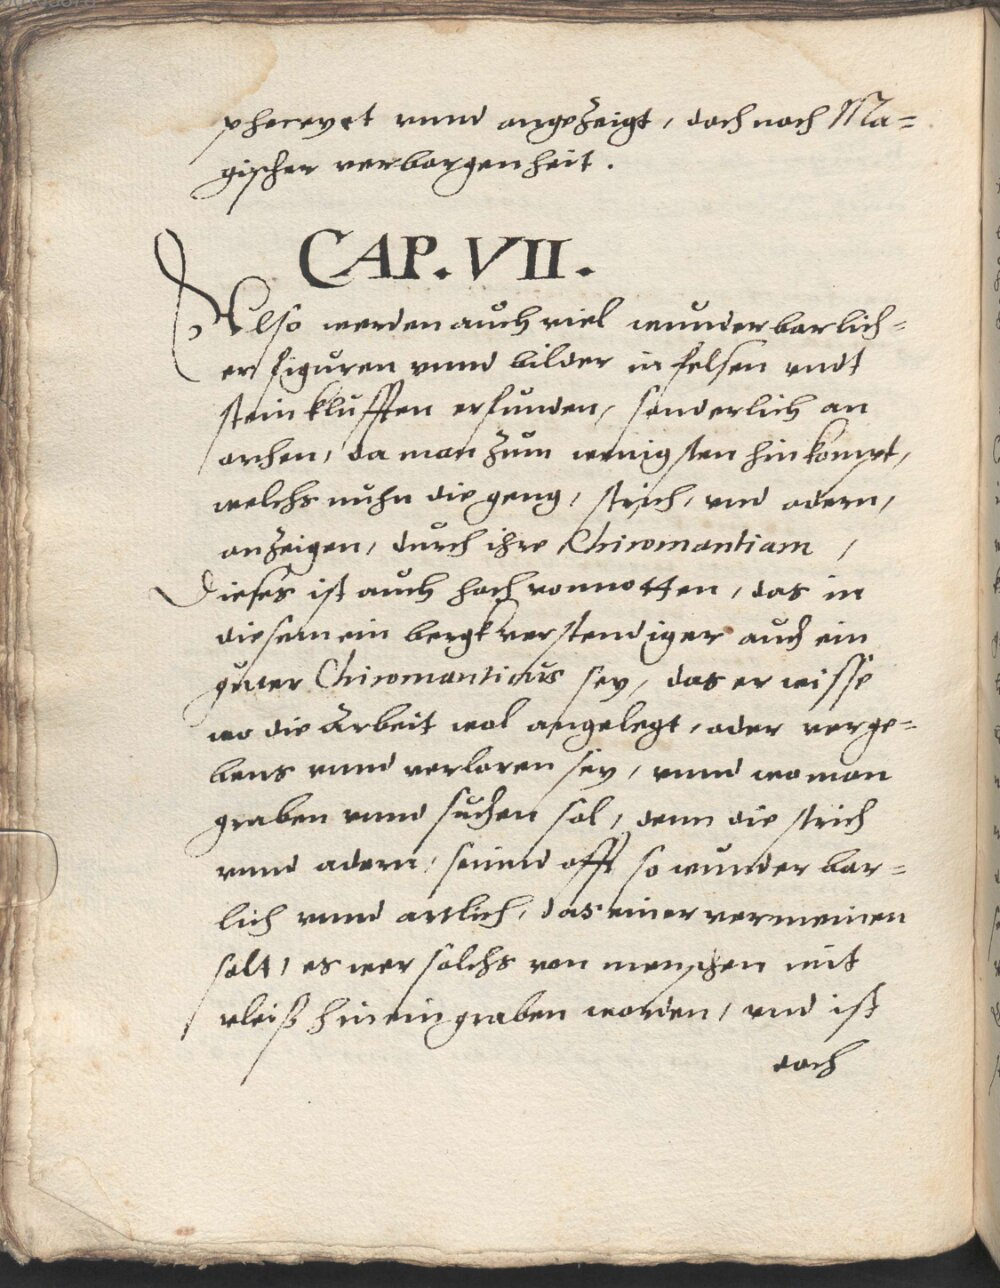 pheceyet vnnd angezeigt, doch nach Ma=
gischer verborgenheit.
CAP. VII.
Also werden auch viel wunderbarlich=
er figuren vnnd bilder in felsen vndt
steinklufften erfunden, sonderlich an
orthen, da man zum wenigsten hinkompt,
welchs nuhn die geng, strich, vnd adern,
anzeigen, durch ihre Chiromantiam,
Dieses ist auch hoch vonnotten, das in
diesem ein bergkverstendiger auch ein
guter Chiromanticus sey, das er wisse
wo die Arbeit wol angelegt, oder verge=
bens vnnd verloren sey, vnnd wo man
graben vnnd suchen sol, denn die strich
vnnd adern, seiind offt so wunderbar=
lich vnnd artlich, das einer vermeinen
solt, es wer solchs von menschen mit
vleiß hinein graben worden, vnd ist
doch